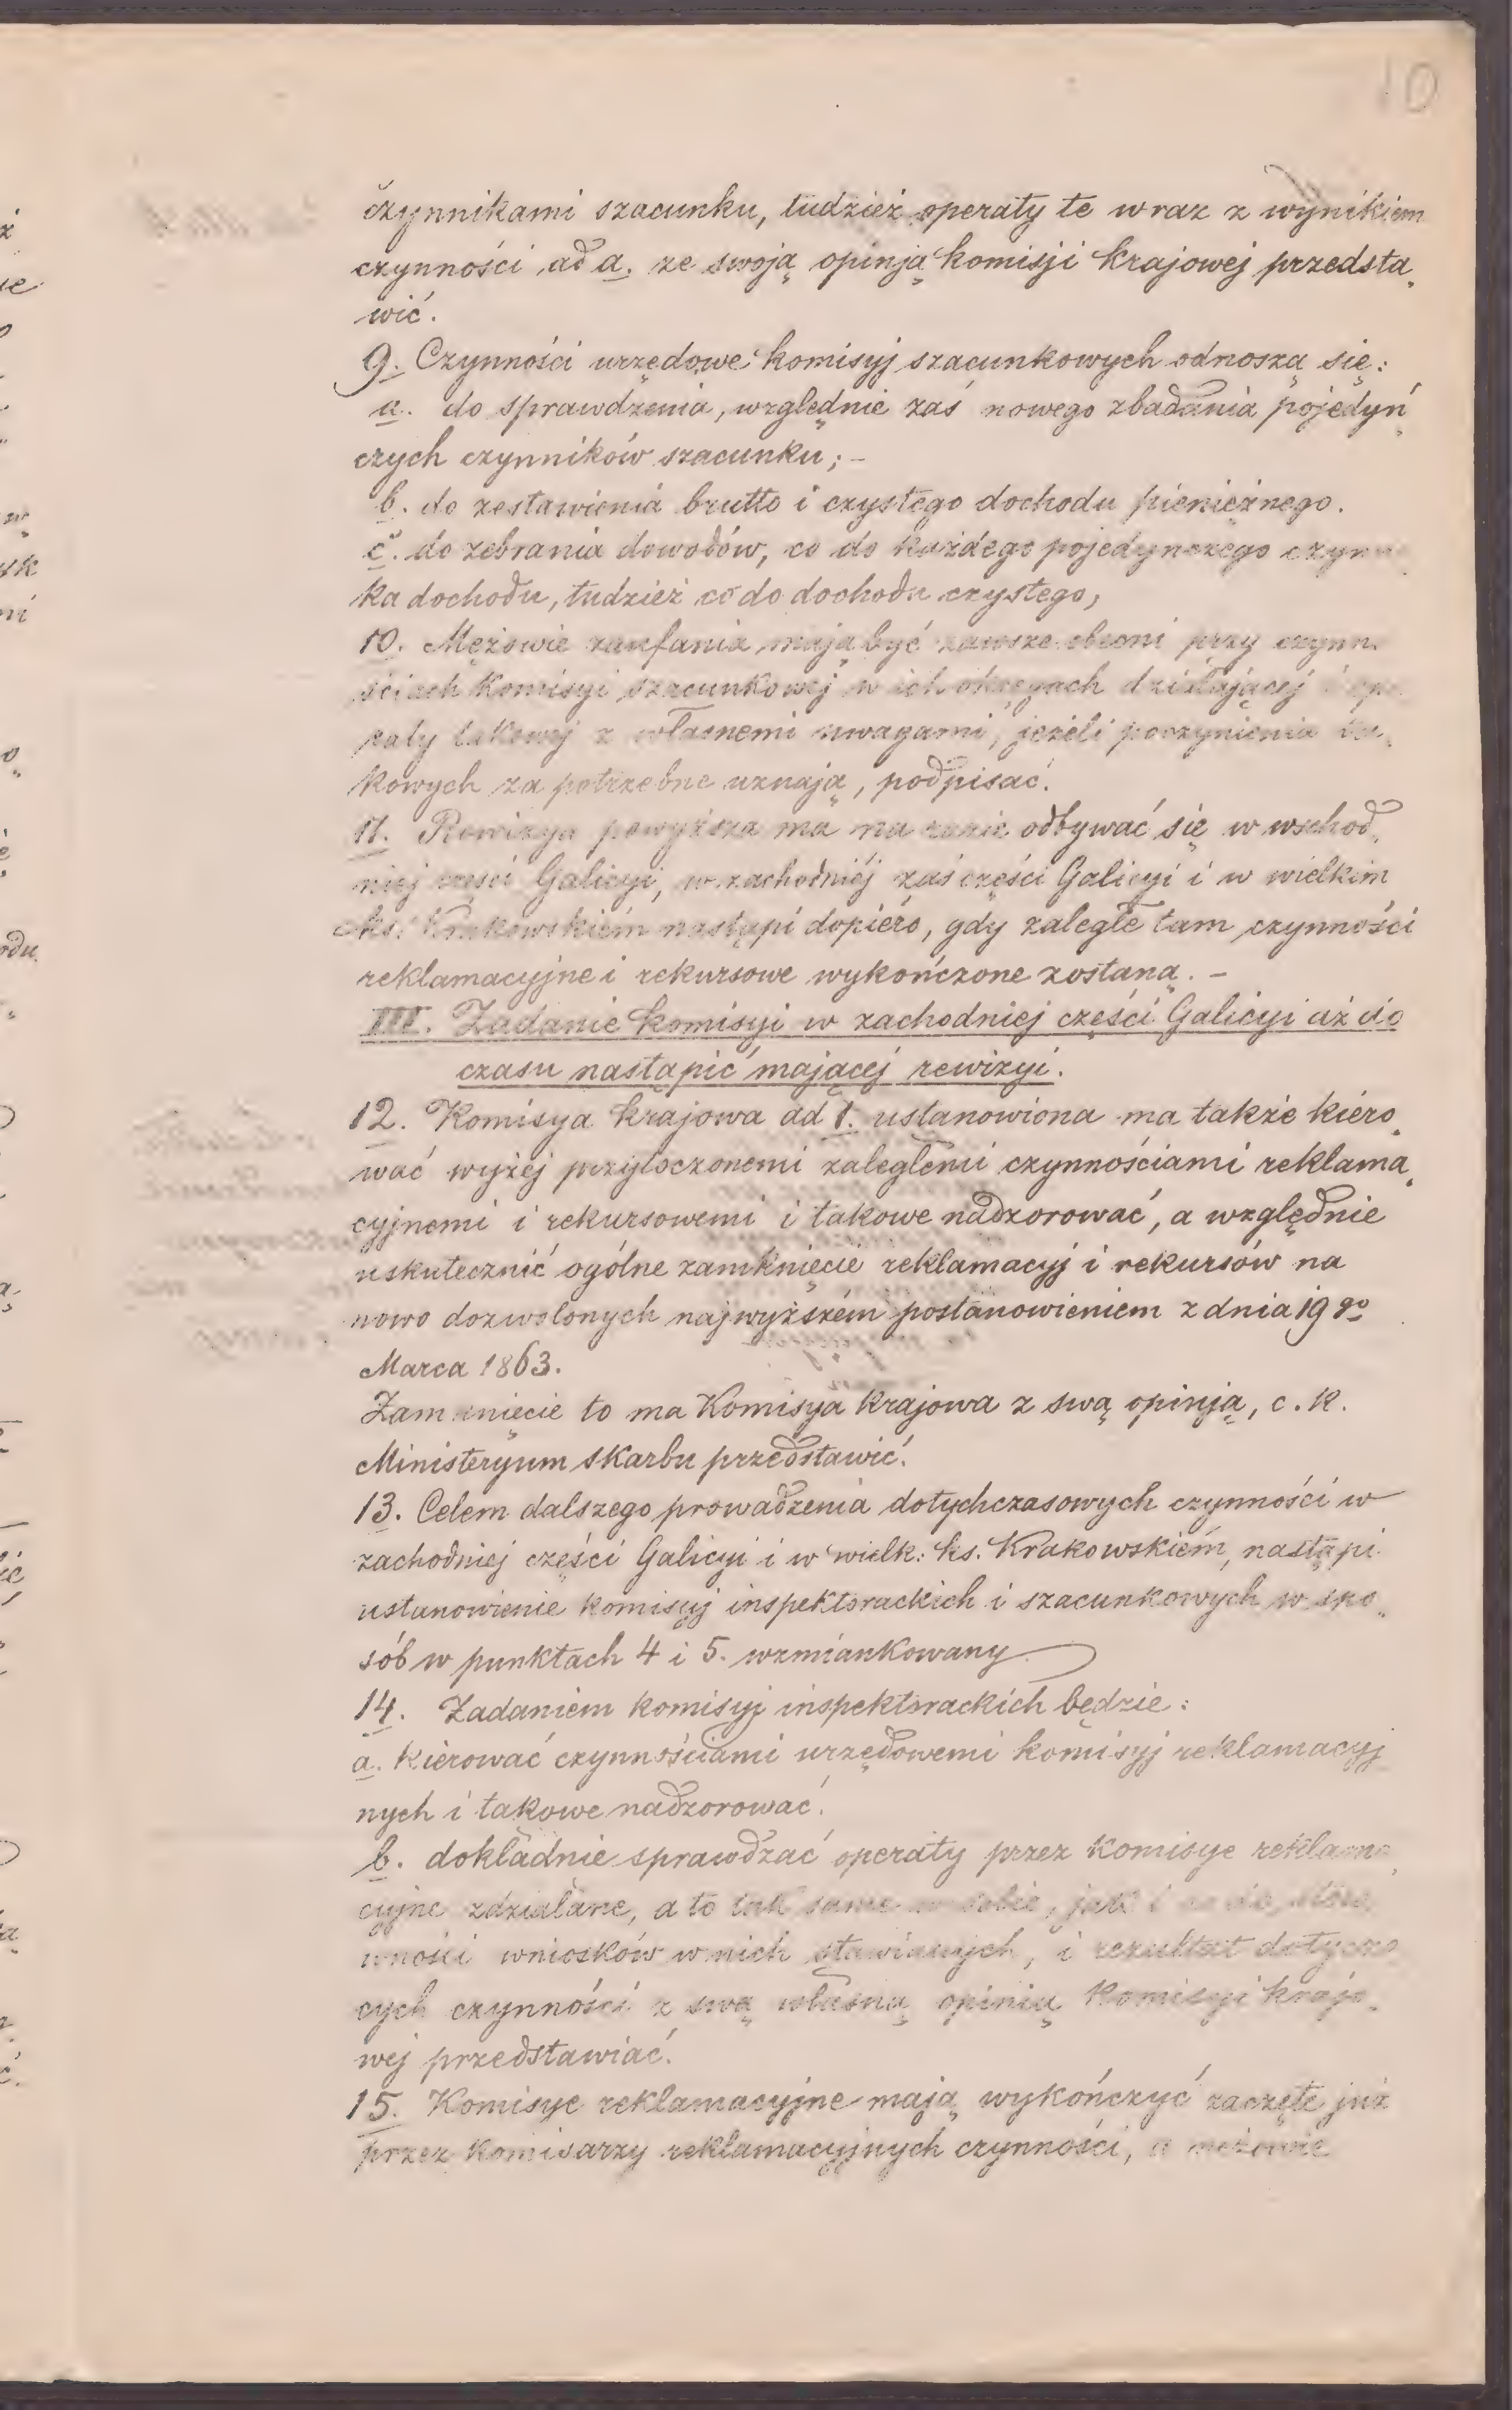 10
czynnikami szacunku, tudzież operaty te wraz z wynikiem
czynności ad a. ze swoją opinją komisji krajowej przedsta„
wić.
9. Czynności urzędowe komisyj szacunkowych odnoszą się:
a. do sprawdzenia, względnie zaś nowego zbadania pojedyń„
czych czynników szacunku; –
b. do zestawienia brutto i czystego dochodu pieniężnego.
c. do zebrania dowodów, co do każdego pojedynczego czynni
ka dochodu, tudzież co do dochodu czystego,
10. Mężowie zaufania mają być zawsze obecni przy czynn.
ściach Komisyi szacunkowej w ich okręgach działającej i ope
raty takowej z własnemi uwagami, jeżeli poczynienia ta„
kowych za potrzebne uznają, podpisać.
11. Rewizya powyższa ma na razie odbywać się w wschod„
niej części Galicyi, w zachodniéj zaś części Galicyi i w wielkim
ks. Krakowskiém nastąpi dopiero, gdy zaległe tam czynności
reklamacyjne i rekursowe wykończone zostaną. –
III. Zadanie komisyi w zachodniej części Galicyi aż do
czasu nastąpić mającej rewizyi.
12. Komisya krajowa ad 1. ustanowiona ma także kiero„
wać wyżej przytoczonemi zaległemi czynnościami reklama„
cyjnemi i rekursowemi i takowe nadzorować, a względnie
uskutecznić ogólne zamknięcie reklamacyj i rekursów na
nowo dozwolonych najwyższém postanowieniem z dnia 19 go
Marca 1863.
Zamknięcie to ma Komisya krajowa z swą opinją, c. k.
Ministeryum skarbu przedstawić.
13. Celem dalszego prowadzenia dotychczasowych czynności w
zachodniej części Galicyi i w wielk: ks. Krakowskiém, nastąpi
ustanowienie komisyj inspektorackich i szacunkowych w spo„
sób w punktach 4 i 5. wzmiankowany
14. Zadaniem komisyj inspektorackich będzie:
a. kierować czynnościami urzędowemi komisyj reklamacyj
nych i takowe nadzorować.
b. dokładnie sprawdzać operaty przez komisye reklama„
cyjne zdziałane, a to tak same w sobie, jak i co do stoso„
wności wniosków w nich stawianych, i rezultat dotyczą
cych czynności z swą własną opinią Komisyi krajo„
wej przedstawiać.
15. Komisye reklamacyjne mają wykończyć zaczęte już
przez komisarzy reklamacyjnych czynności, a mężowie